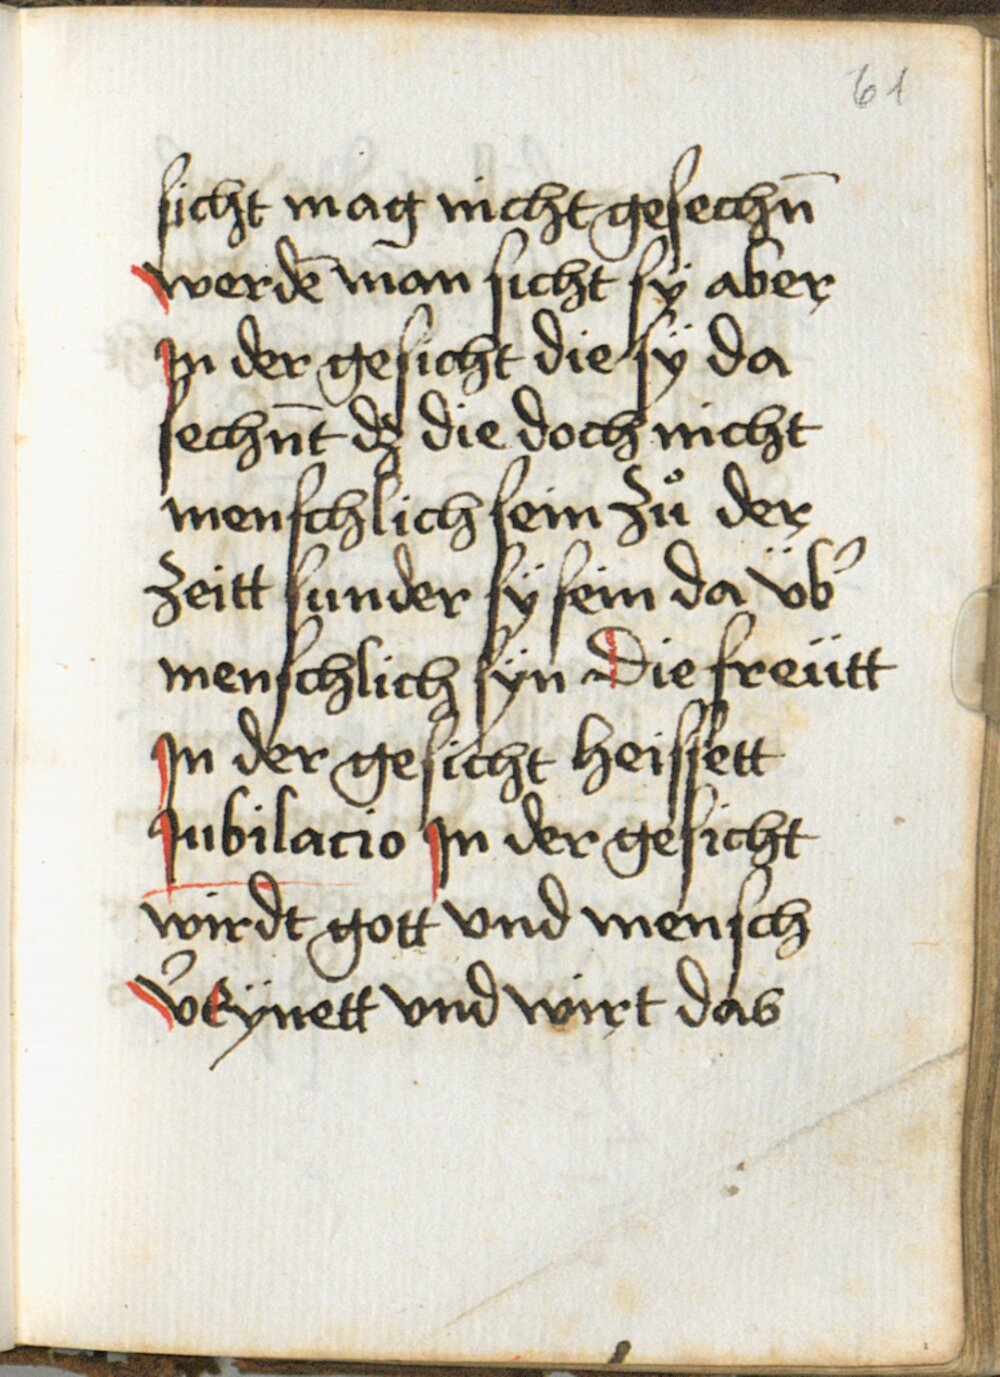 61
sicht mag nicht gesechn̄
werdē man sicht sÿ aber
Jn der gesicht die sÿ da
sechn̄t dz die doch nicht
menschlich sein zů der
zeitt sunder sÿ sein da üb̾
menschlich sÿn Die freütt
Jn der gesicht heissett
Jubilacio Jn der gesicht
wirdt gott vnd mensch
v̾Eÿnett vnd wirt das